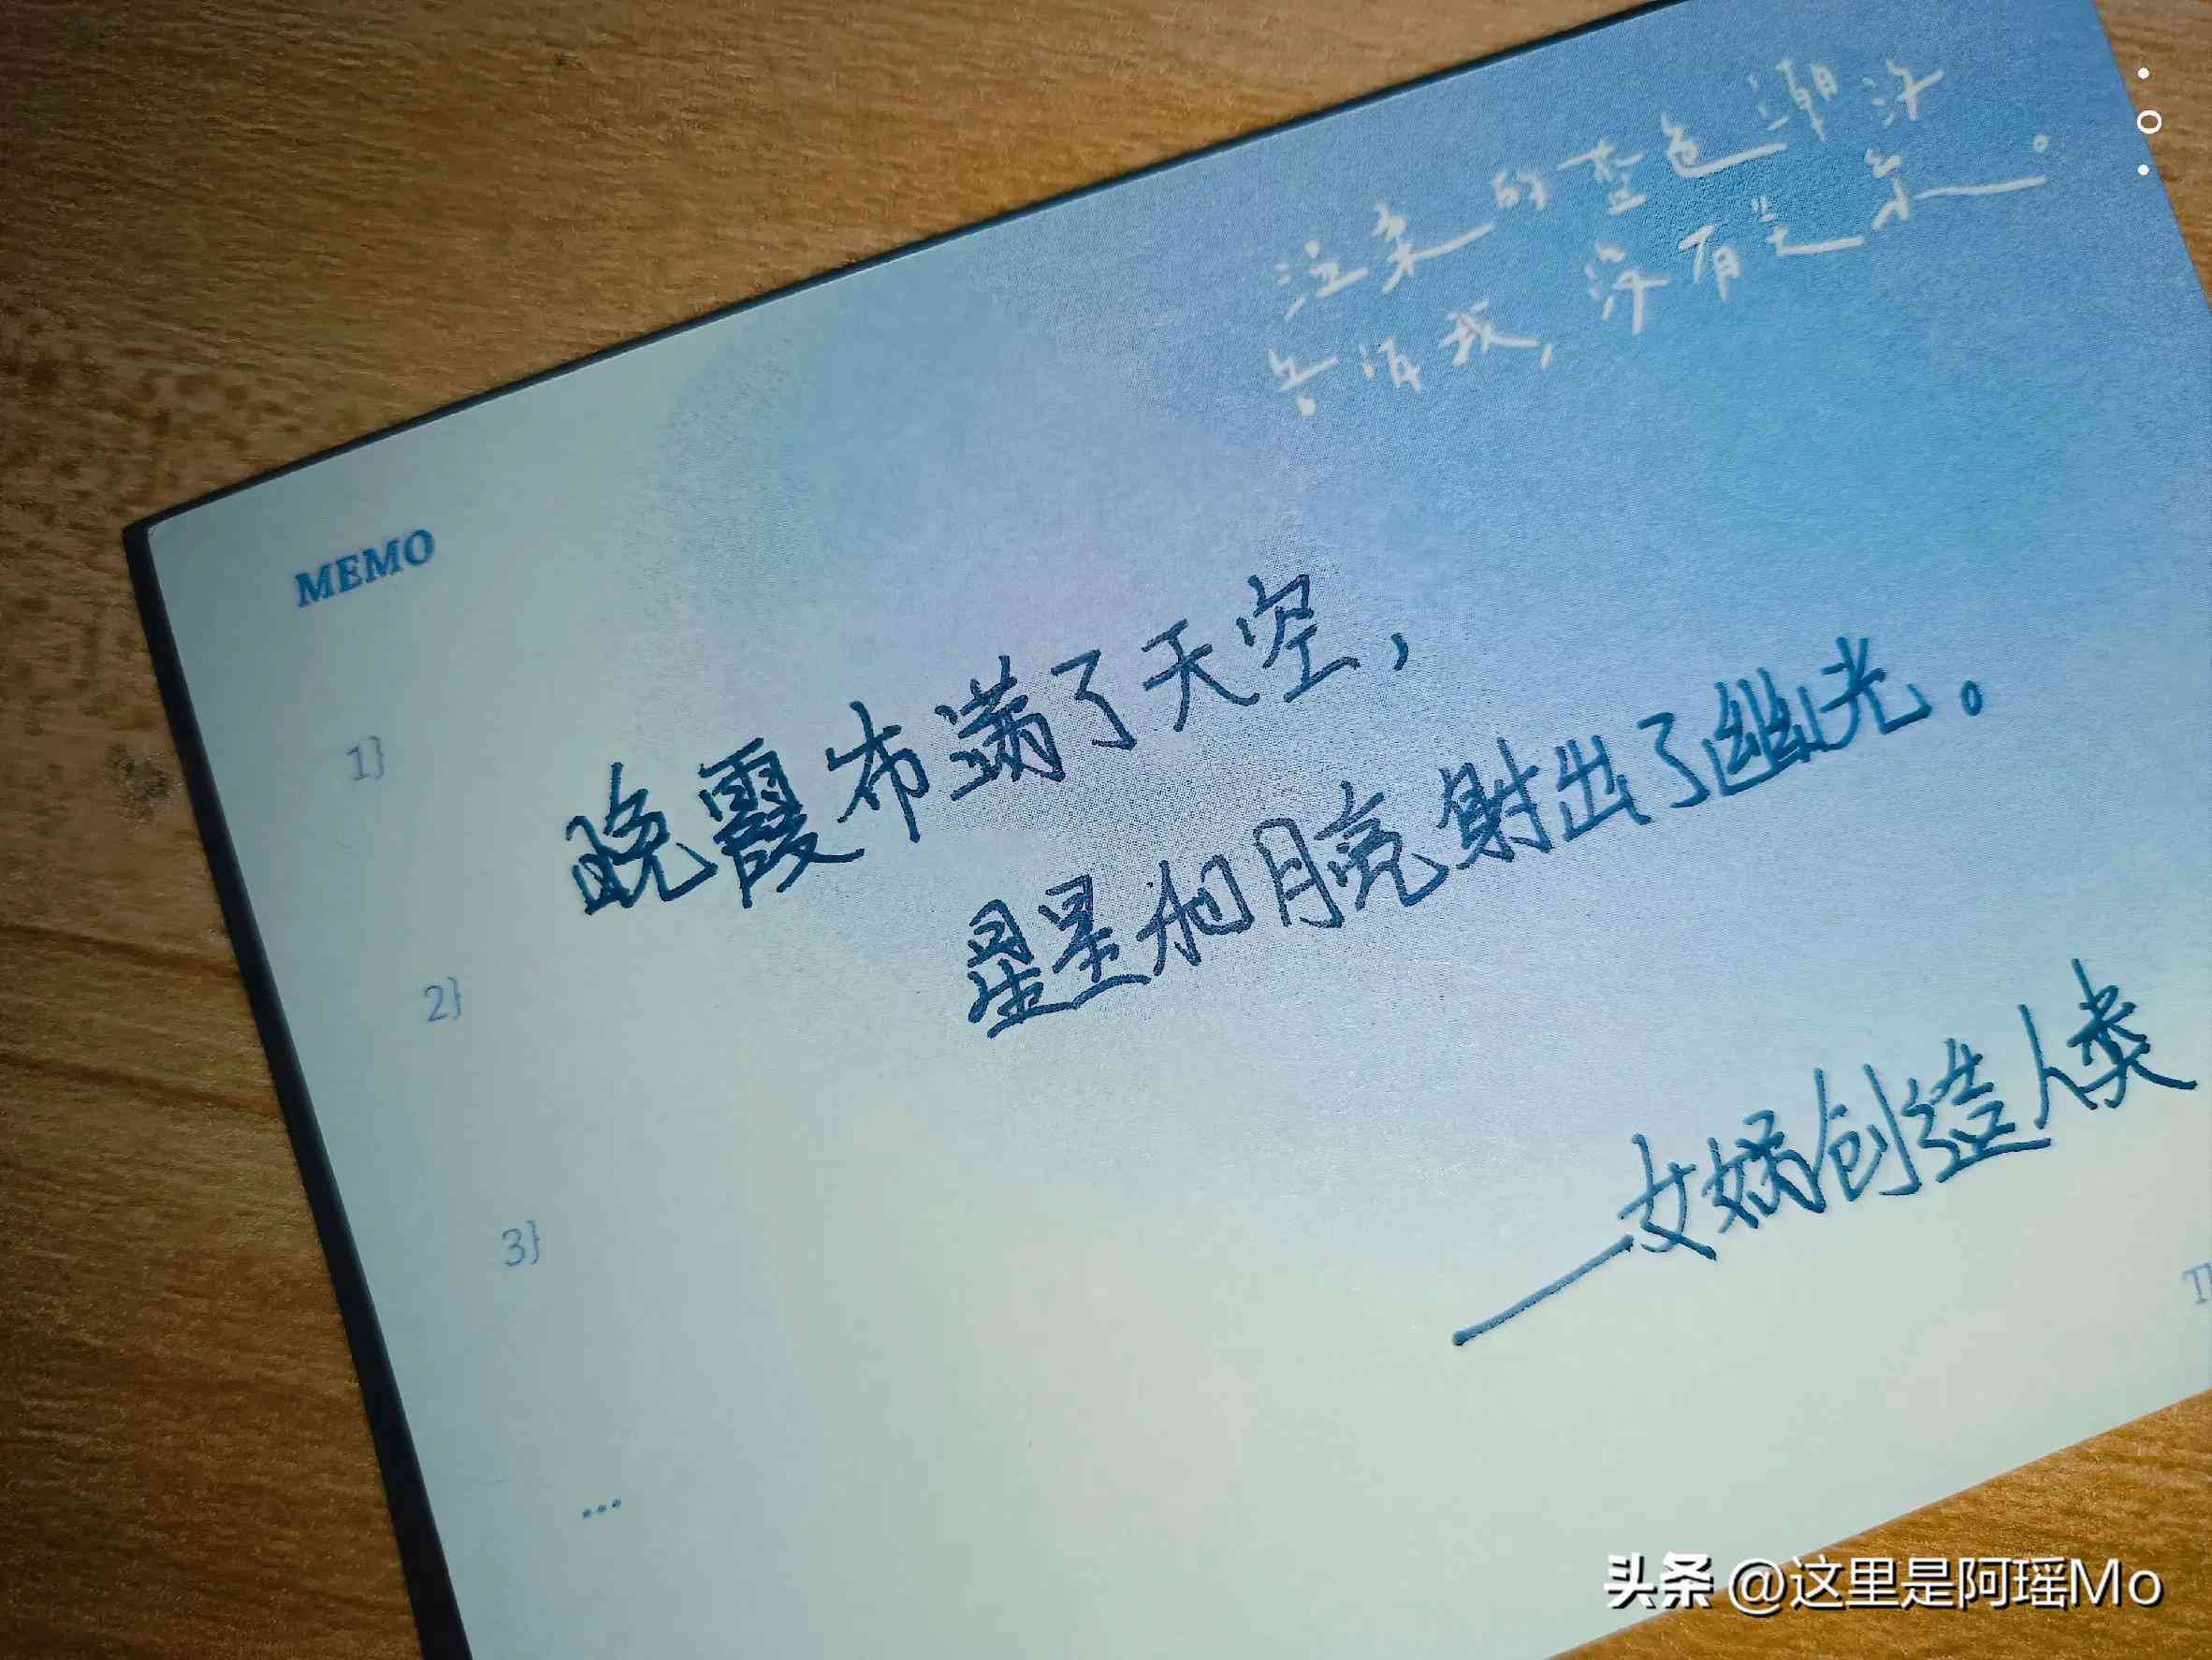 来的蓝色潮汐
告诉我,没有关系。
MEMO
1}
晚霞布满了天空,
星星和月亮射出了幽光。
2}
——女娲创造人类
3}
...
头条 @这里是阿瑶Mo